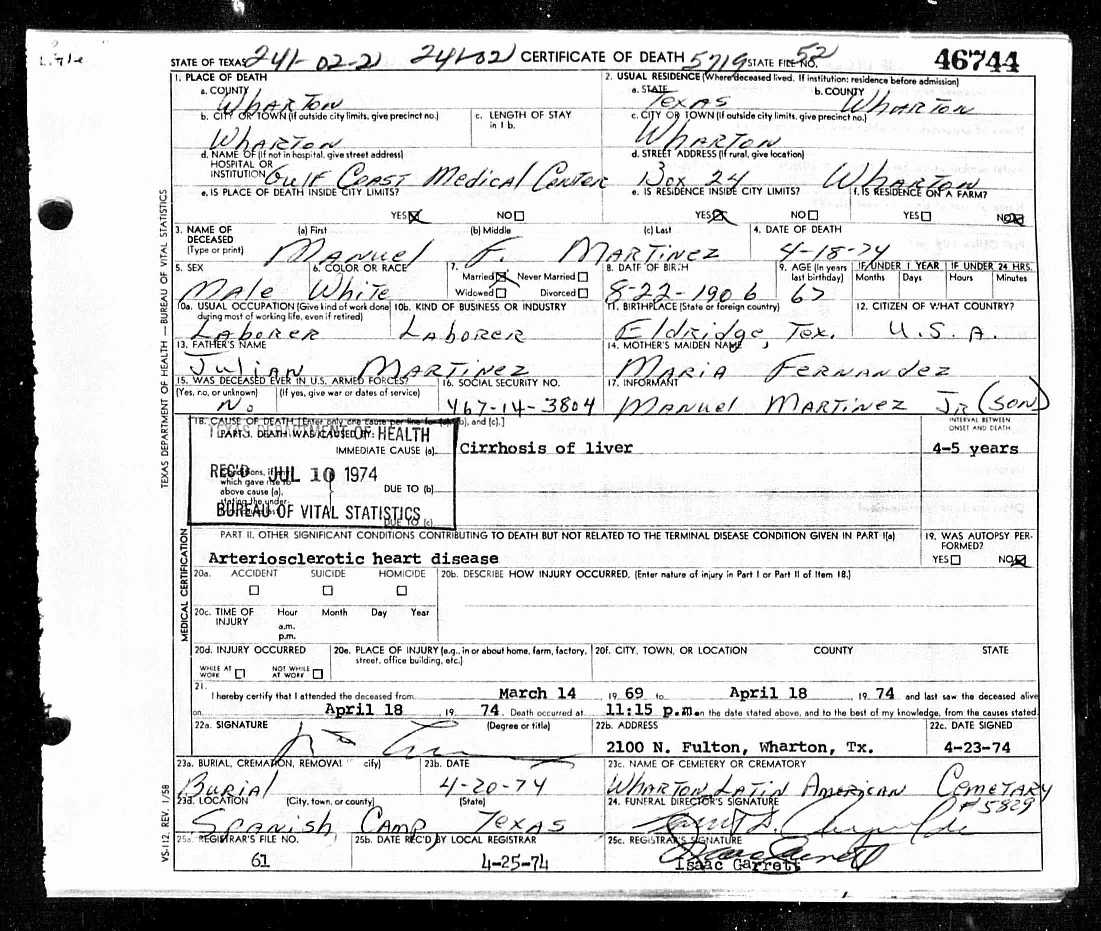 STATE OF TEXAS 241-02-2 241-02 CERTIFICATE OF DEATH 5719 STATE FILE NO. 52 46744
1. PLACE OF DEATH 2. USUAL RESIDENCE (Where deceased lived. If institution: residence before admission)
a. COUNTY a. STATE b. COUNTY
Wharton Texas Wharton
b. CITY OR TOWN (If outside city limits, give precinct no.) c. LENGTH OF STAY in 1 b. c. CITY OR TOWN (If outside city limits, give precinct no.)
Wharton Wharton
d. NAME OF (If not in hospital, give street address) d. STREET ADDRESS (If rural, give location)
HOSPITAL OR
INSTITUTION Gulf Coast Medical Center Box 24 Wharton
e. IS PLACE OF DEATH INSIDE CITY LIMITS? e. IS RESIDENCE INSIDE CITY LIMITS? f. IS RESIDENCE ON A FARM?
YES NO YES NO YES NO
3. NAME OF DECEASED (Type or print) (a) First (b) Middle (c) Last 4. DATE OF DEATH
Manuel F. Martinez 4-18-74
5. SEX 6. COLOR OR RACE 7. Married Never Married Widowed Divorced 8. DATE OF BIRTH 9. AGE (In years last birthday) IF UNDER 1 YEAR IF UNDER 24 HRS.
Months Days Hours Minutes
Male White 8-22-1906 67
10a. USUAL OCCUPATION (Give kind of work done during most of working life, even if retired) 10b. KIND OF BUSINESS OR INDUSTRY 11. BIRTHPLACE (State or foreign country) 12. CITIZEN OF WHAT COUNTRY?
Laborer Laborer Eldridge, Tex. U.S.A.
13. FATHER'S NAME 14. MOTHER'S MAIDEN NAME
Julian Martinez Maria Fernandez
15. WAS DECEASED EVER IN U.S. ARMED FORCES? 16. SOCIAL SECURITY NO. 17. INFORMANT
(Yes, no, or unknown) (If yes, give war or dates of service)
No 467-14-3804 Manuel Martinez Jr (Son)
18. CAUSE OF DEATH [Enter only one cause per line for (a), (b), and (c).] INTERVAL BETWEEN ONSET AND DEATH
TEXAS DEPARTMENT OF HEALTH
PART I. DEATH WAS CAUSED BY:
IMMEDIATE CAUSE (a) Cirrhosis of liver 4-5 years
REC'D JUL 10 1974
Conditions, if
which gave rise to
above cause (a),
stating the under-
DUE TO (b)
BUREAU OF VITAL STATISTICS
DUE TO (c)
PART II. OTHER SIGNIFICANT CONDITIONS CONTRIBUTING TO DEATH BUT NOT RELATED TO THE TERMINAL DISEASE CONDITION GIVEN IN PART I(a) 19. WAS AUTOPSY PERFORMED?
Arteriosclerotic heart disease YES NO
20a. ACCIDENT SUICIDE HOMICIDE 20b. DESCRIBE HOW INJURY OCCURRED. (Enter nature of injury in Part I or Part II of Item 18.)
20c. TIME OF INJURY Hour Month Day Year
a.m.
p.m.
20d. INJURY OCCURRED 20e. PLACE OF INJURY (e.g., in or about home, farm, factory, street, office building, etc.) 20f. CITY, TOWN, OR LOCATION COUNTY STATE
WHILE AT WORK NOT WHILE AT WORK
21.
I hereby certify that I attended the deceased from March 14 19 69 to April 18 19 74 and last saw the deceased alive
on April 18 19 74. Death occurred at 11:15 p.m. on the date stated above, and to the best of my knowledge, from the causes stated.
22a. SIGNATURE (Degree or title) 22b. ADDRESS 22c. DATE SIGNED
2100 N. Fulton, Wharton, Tx. 4-23-74
23a. BURIAL, CREMATION, REMOVAL cify) 23b. DATE 23c. NAME OF CEMETERY OR CREMATORY
Burial 4-20-74 Wharton Latin American Cemetary
23d. LOCATION (City, town, or county) (State) 24. FUNERAL DIRECTOR'S SIGNATURE #5829
Spanish Camp Texas
25a. REGISTRAR'S FILE NO. 25b. DATE REC'D BY LOCAL REGISTRAR 25c. REGISTRAR'S SIGNATURE
61 4-25-74 Isaac Garrett
TEXAS DEPARTMENT OF HEALTH — BUREAU OF VITAL STATISTICS
MEDICAL CERTIFICATION
VS-112 REV. 1/58